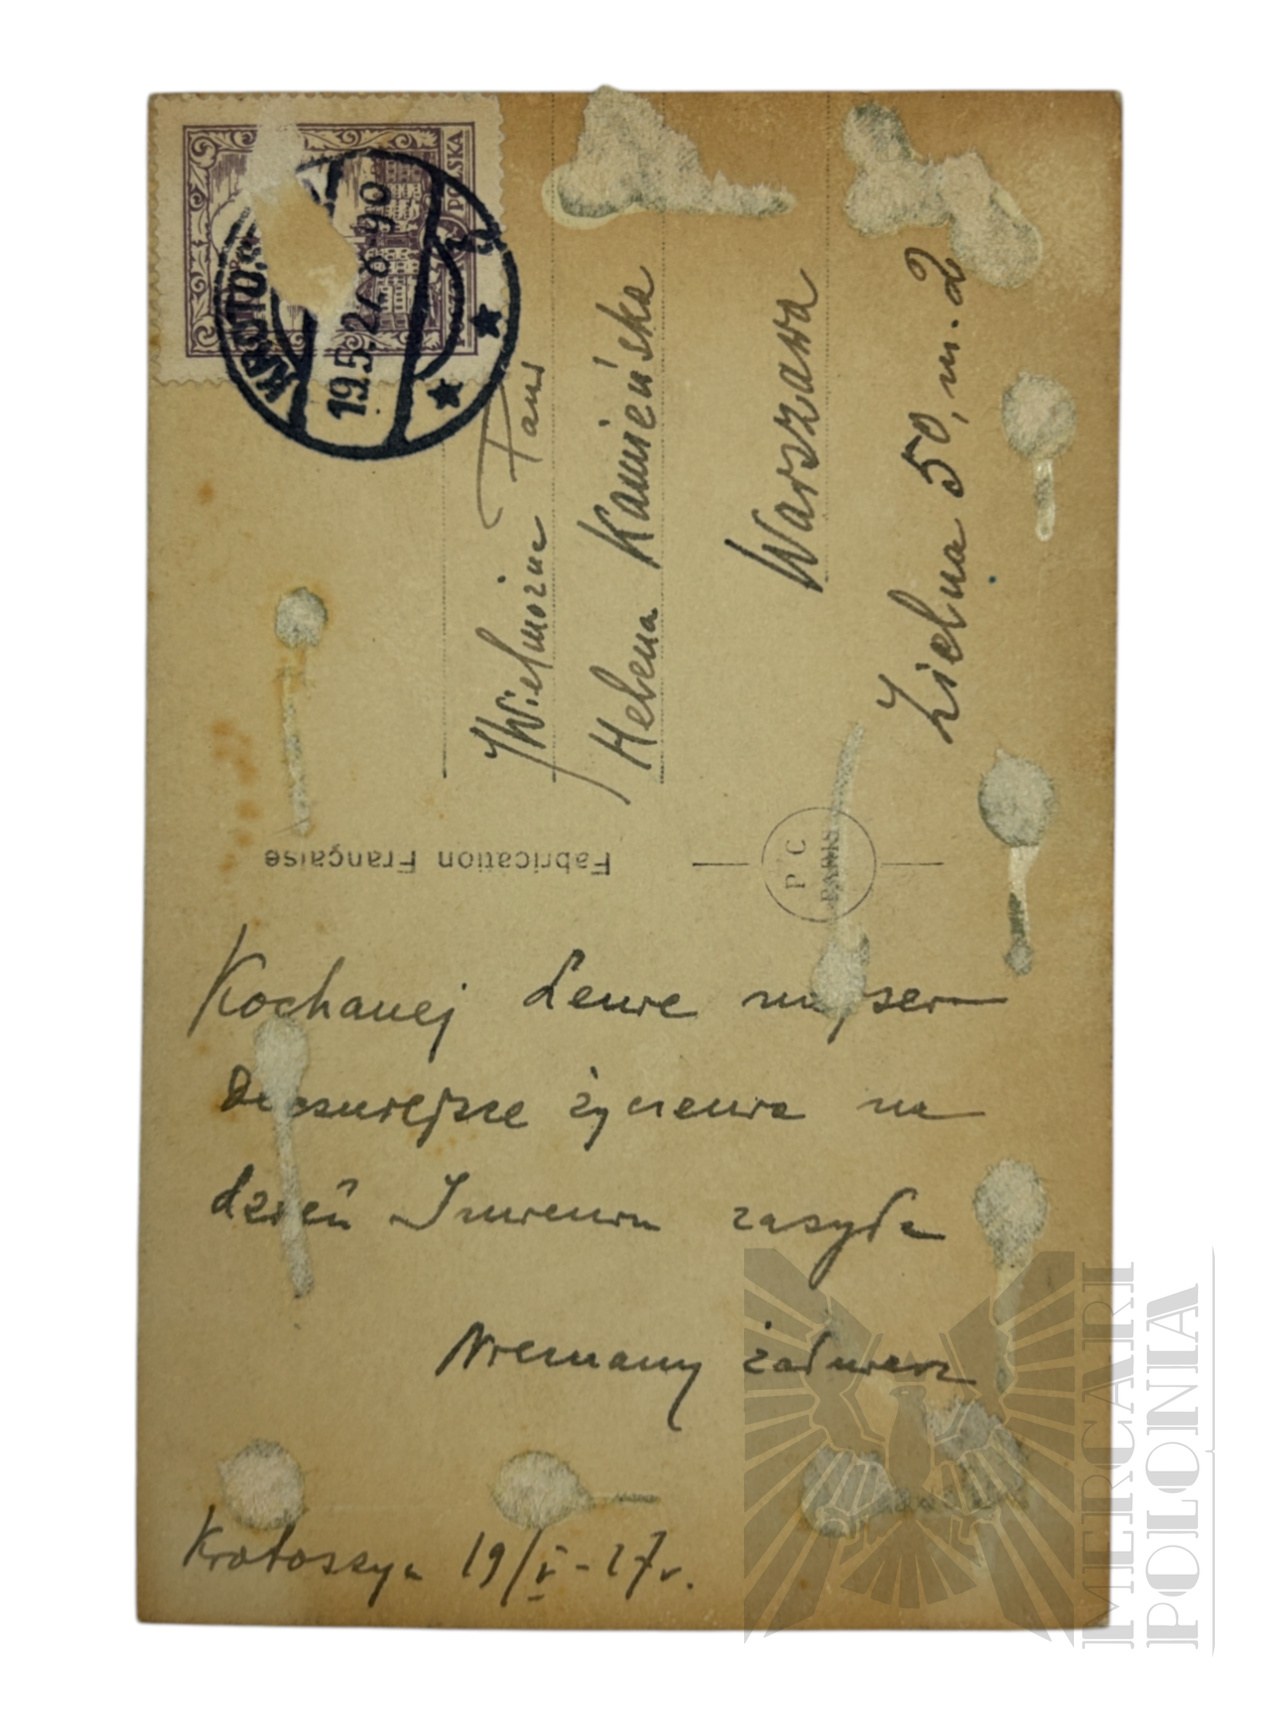 POLSKA
KROTO
19.5.27.8-90
JWielmożna Pani
Helena Kamieńska
Warszawa
Zielna 50, m. 2
Fabrication Française
P C
PARIS
Kochanej najser-
deczniejsze życzenia na
dzień Imienin zasyła
żołnierz
Krotoszyn 19/V-27r.
MERCARI
POLONIA